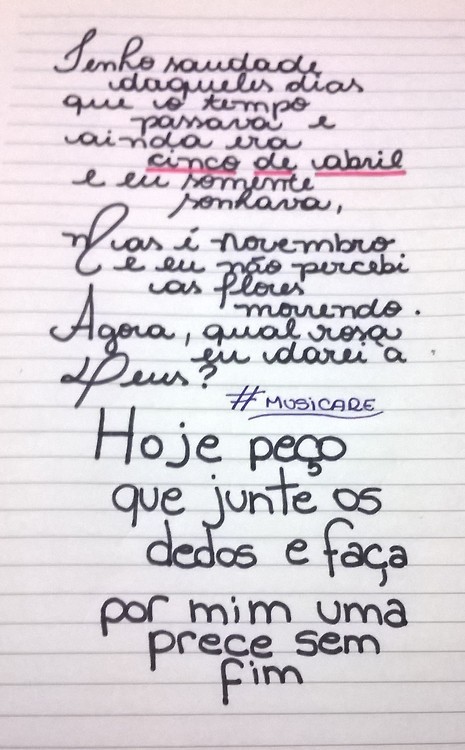 Tenho saudade
daqueles dias
que o tempo
passava e
ainda era
cinco de abril
e eu somente
sonhava,
Mas é novembro
e eu não percebi
as flores
morrendo.
Agora, qual rosa
eu darei à
Deus?
#MUSICARE
Hoje peço
que junte os
dedos e faça
por mim uma
prece sem
fim